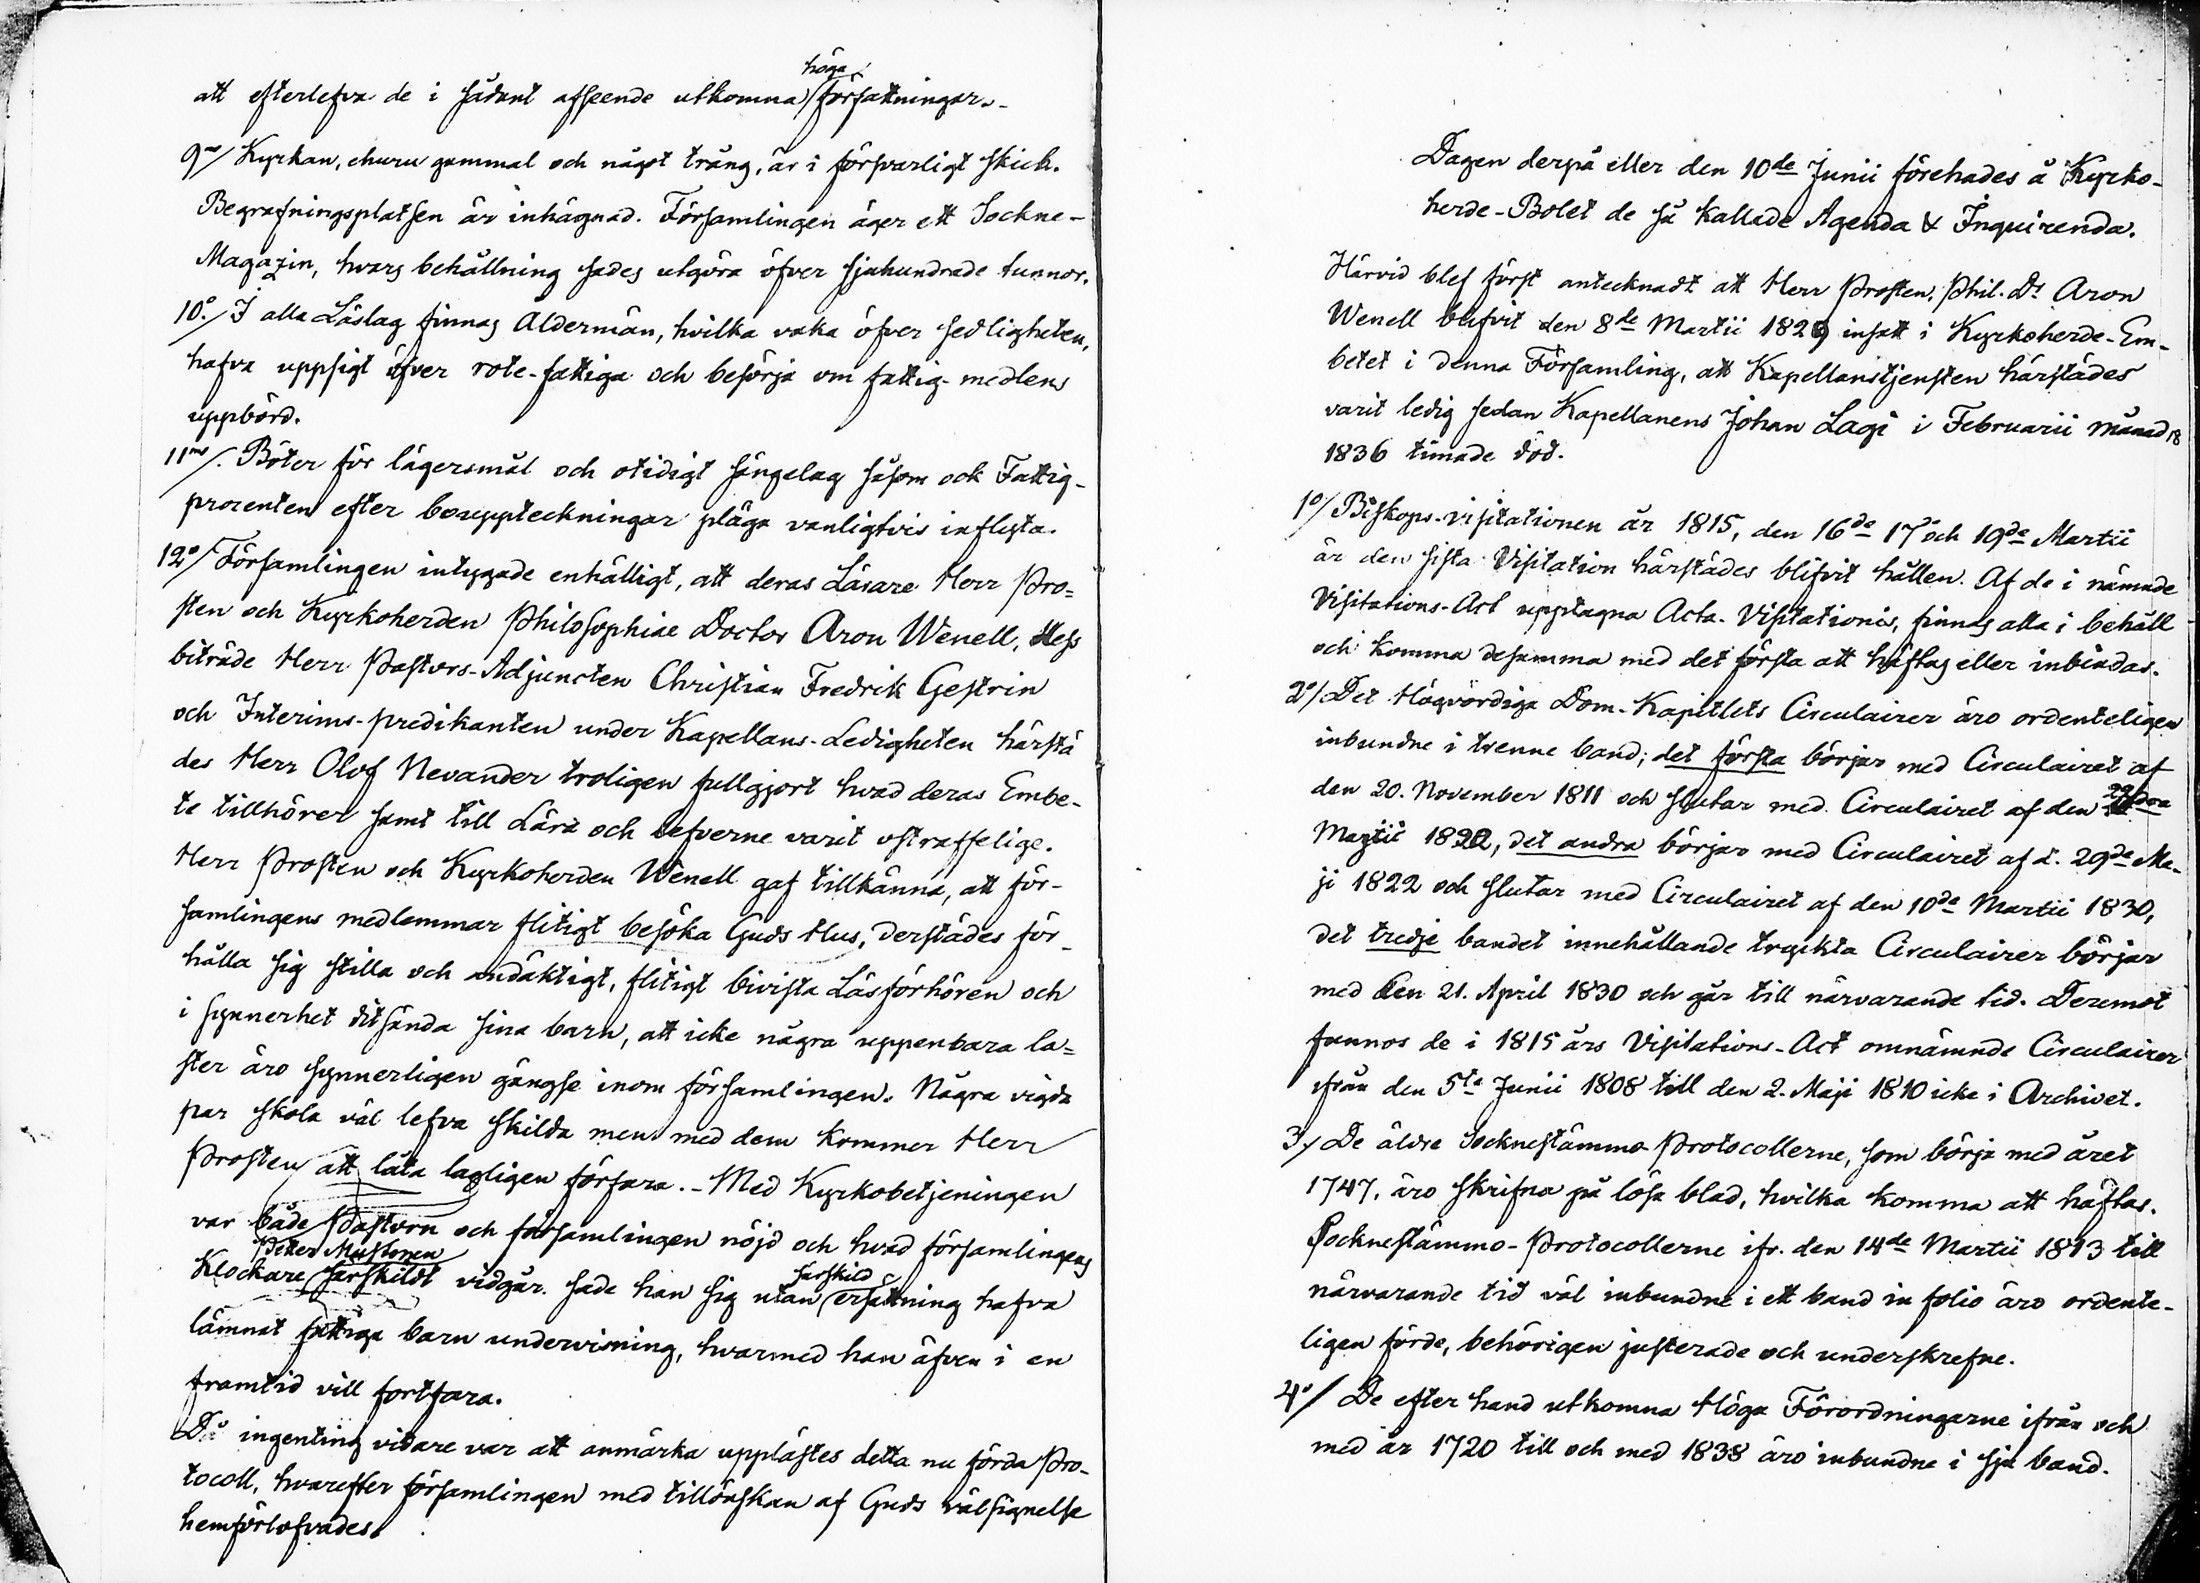 höga
att efterlefva de i sådant afseende utkomna författningar.-
9no/ Kyrkan, ehuru gammal och något trång, är i försvarligt skick.
Begrafningsplatsen är inhägnad. Församlingen äger ett Sockne-
Magazin, hvars behållning sades utgöra öfver sjuhundrade tunnor.
10o./ I alla Läslag finnas Åldermän, hvilka vaka öfver sedligheten,
hafva uppsigt öfver rote-fattiga och besörja om fattig-medlens
uppbörd.
11mo/. Böter för lägersmål och otidigt sängelag såsom ock Fattig-
procenten efter bouppteckningar pläga vanligtvis inflyta.
12o/ Församlingen intygade enhälligt, att deras Lärare Herr Pro=
sten och Kyrkoherden Philosophiae Doctor Aron Wenell, dess
biträde Herr Pastors-Adjuncten Christian Fredrik Gestrin
och Interims-predikanten under Kapellans-Ledigheten härstä
des Herr Olof Nevander troligen fullgjort hvad deras Embe-
te tillhörer samt till Lära och lefverne varit ostraffelige.
Herr Prosten och Kyrkoherden Wenell gaf tillkänna, att för-
samlingens medlemmar flitigt besöka Guds Hus, derstädes för-
hålla sig stilla och andäktigt, flitigt bivista Läsförhören och
i synnerhet ditsända sina barn, att icke några uppenbara la=
ster äro synnerligen gängse inom församlingen. Några vigda
par skola väl lefva skilda men med dem kommer Herr
Prosten att låta lagligen förfara.- Med Kyrkobetjeningen
var både Pastorn och församlingen nöjd och hvad församlingens
Petter Mustonen
Klockare särskildt vidgår. sade han sig utan ersättning hafva
särskild
lämnat fattiga barn undervisning, hvarmed han äfven i en
framtid vill fortfara.
Då ingenting vidare var att anmärka upplästes detta nu förda Pro-
tocoll, hvarefter församlingen med tillönskan af Guds välsignelse
hemförlofvades.
Dagen derpå eller den 10de Junii förehades å Kyrko-
herde-Bolet de så kallade Agenda & Inquirenda.
Härvid blef först antecknadt att Herr Prosten, Phil. Dr Aron
Wenell blifvit den 8de Martii 1829 insatt i Kyrkoherde-Em-
betet i denna Församling, att Kapellanstjensten härstädes
varit ledig sedan Kapellanens Johan Lagi i Februarii månad
1836 timade död.
1o/ Biskops-visitationen år 1815, den 16de 17de och 19de Martii
är den sista Visitation härstädes blifvit hållen. Af de i nämnde
Visitations-Act upptagna Acta-Visitationis, finnas alla i behåll
och komma desamma med det första att häftas eller inbindas.
2o/ Det Högvördiga Dom-Kapitlets Circulairer äro ordenteligen
inbundne i trenne band; det första börjar med Circulairet af
den 20. November 1811 och slutar med Circulairet af den 22dra
Martii 1822, det andra börjar med Circulairet af d. 29de Ma-
ji 1822 och slutar med Circulairet af den 10de Martii 1830,
det tredje bandet innehållande tryckta Circulairer börjar
med den 21. April 1830 och går till närvarande tid. Deremot
funnos de i 1815 års Visitations-Act omnämnde Circulairer
ifrån den 5ta Junii 1808 till den 2. Maji 1810 icke i Archivet.
3/ De äldre Sockneståmmo-Protocollerne, som börja med året
1747, äro skrifna på lösa blad, hvilka komma att häftas.
Socknestämmo-Protocollerne ifr. den 14de Martii 1813 till
närvarande tid väl inbundne i ett band in folio äro ordente-
ligen förde, behörigen justerade och underskrefne.
4o/ De efter hand utkomna Höga Förordningarne ifrån och
med år 1720 till och med 1838 äro inbundne i sju band.